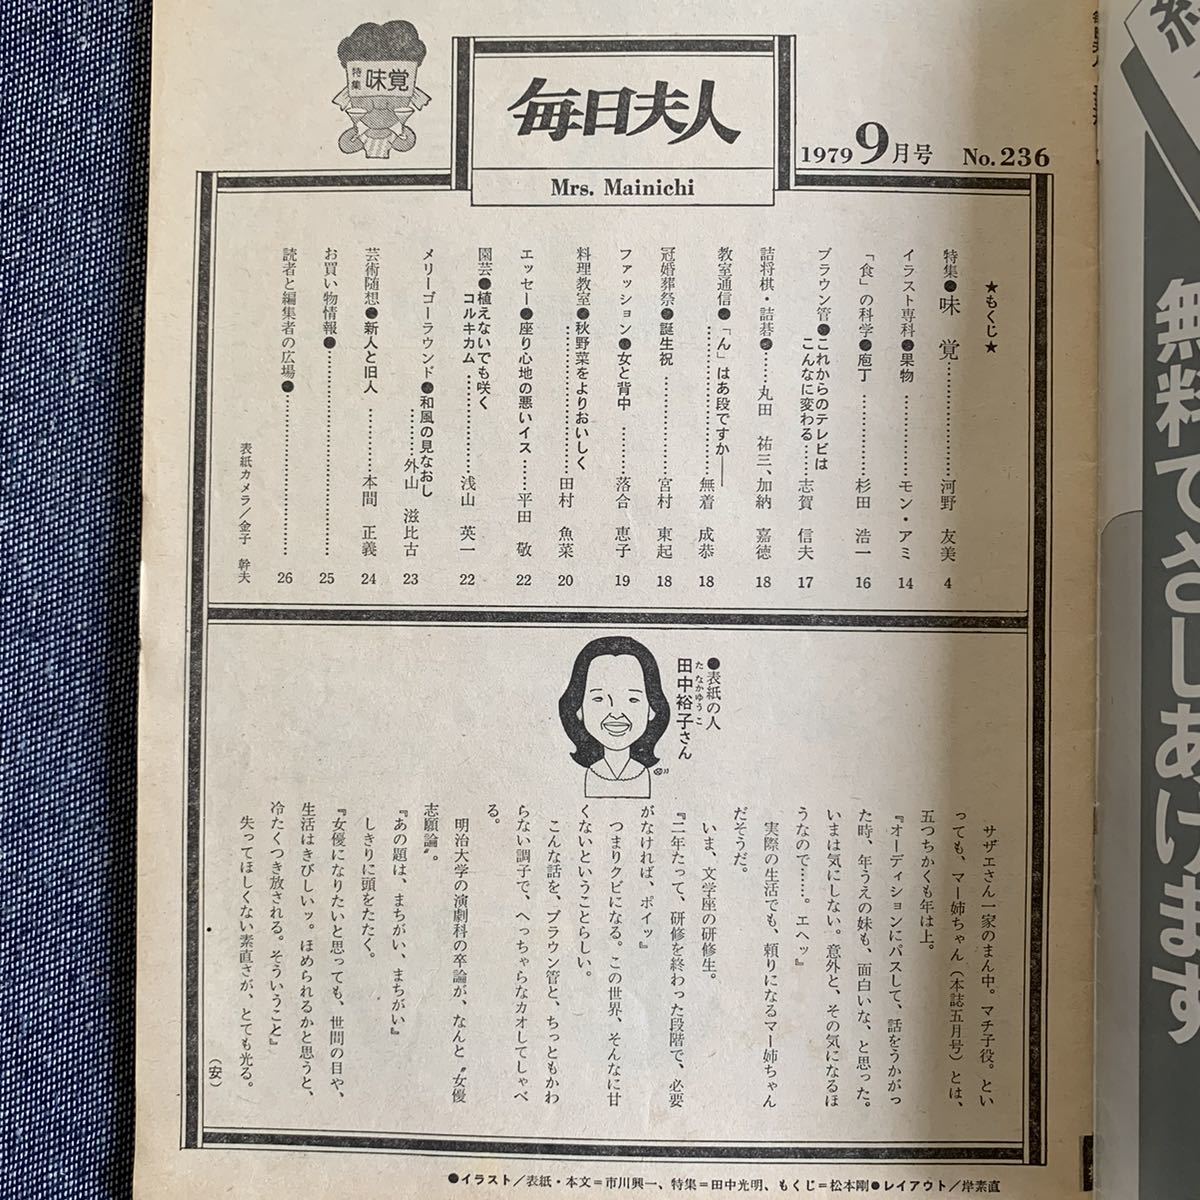 特集
味覚
毎日夫人
Mrs. Mainichi
1979 9月号 No.236
★もくじ★
特集●味覚…………河野 友美 4
イラスト専科●果物…………モン・アミ 14
「食」の科学●庖丁…………杉田 浩一 16
ブラウン管●これからのテレビは
こんなに変わる……志賀 信夫 17
詰将棋・詰碁●……丸田 祐三、加納 嘉徳 18
教室通信●「ん」はあ段ですか——
…………無着 成恭 18
冠婚葬祭●誕生祝…………宮村 東起 18
ファッション●女と背中……落合 恵子 19
料理教室●秋野菜をよりおいしく
…………田村 魚菜 20
エッセー●座り心地の悪いイス……平田 敬 22
園芸●植えないでも咲く
コルキカム…………浅山 英一 22
メリーゴーラウンド●和風の見なおし
……外山 滋比古 23
芸術随想●新人と旧人……本間 正義 24
お買い物情報●………… 25
読者と編集者の広場●………… 26
表紙カメラ/金子 幹夫
●表紙の人
田中裕子さん
たなかゆうこ
サザエさん一家のまん中。マチ子役。とい
っても、マー姉ちゃん（本誌五月号）とは、
五つちかくも年は上。
『オーディションにパスして、話をうかがっ
た時、年うえの妹も、面白いな、と思った。
いまは気にしない。意外と、その気になるほ
うなので……。エヘッ』
実際の生活でも、頼りになるマー姉ちゃん
だそうだ。
いま、文学座の研修生。
『二年たって、研修を終わった段階で、必要
がなければ、ポイッ』
つまりクビになる。この世界、そんなに甘
くないということらしい。
こんな話を、ブラウン管と、ちっともかわ
らない調子で、へっちゃらなカオしてしゃべ
る。
明治大学の演劇科の卒論が、なんと〝女優
志願論〟。
『あの題は、まちがい、まちがい』
しきりに頭をたたく。
『女優になりたいと思っても、世間の目や、
生活はきびしいッ。ほめられるかと思うと、
冷たくつき放される。そういうこと』
失ってほしくない素直さが、とても光る。
（安）
●イラスト/表紙・本文＝市川興一、特集＝田中光明、もくじ＝松本剛●レイアウト/岸素直
無料でさしあげます